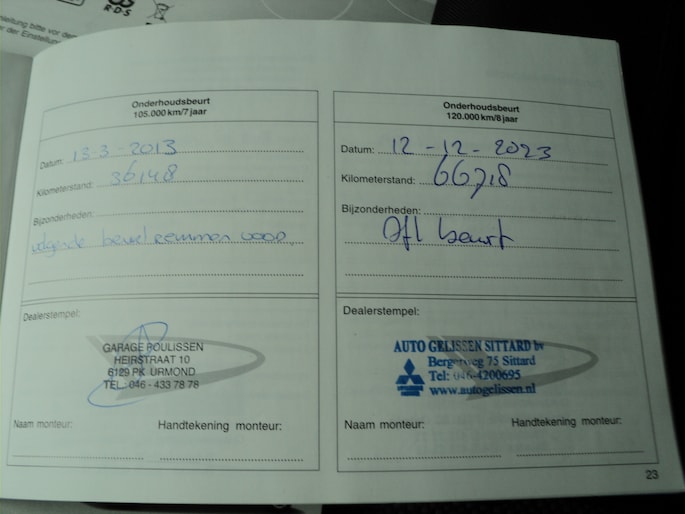 R·D·S
Onderhoudsbeurt
105.000 km/7 jaar
Datum: 13-3-2013
Kilometerstand: 36148
Bijzonderheden:
volgende beurt remmen voor
Dealerstempel:
GARAGE POULISSEN
HEIRSTRAAT 10
6129 PK URMOND
TEL.: 046 - 433 78 78
Naam monteur:
Handtekening monteur:
Onderhoudsbeurt
120.000 km/8 jaar
Datum: 12-12-2023
Kilometerstand:
Bijzonderheden:
beurt
Dealerstempel:
AUTO GELISSEN SITTARD bv
Bergerweg 75 Sittard
Tel: 046-4200695
www.autogelissen.nl
Naam monteur:
Handtekening monteur:
23